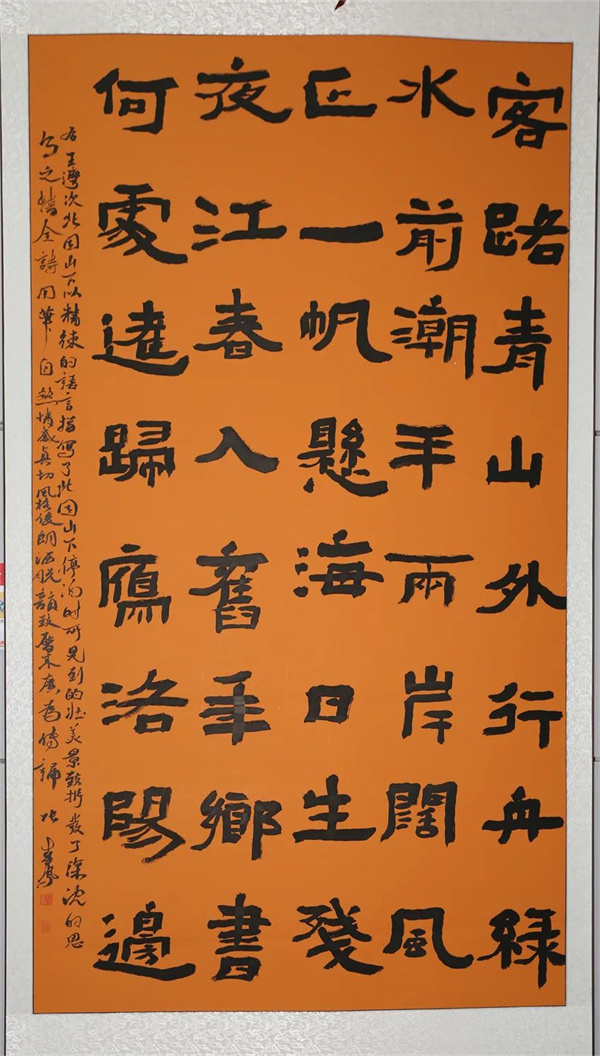 客路青山外行舟綠
水前潮平兩岸闊風
正一帆懸海日生殘
夜江春入舊年鄉書
何處達歸鴈洛陽邊
右王灣次北固山下以精練的語言描寫了北固山下停泊時所見到的壯美景致抒發了深沈的思
鄉之情全詩用筆自然情感真切風格俊朗洒脫韻致歷來廣為傳誦